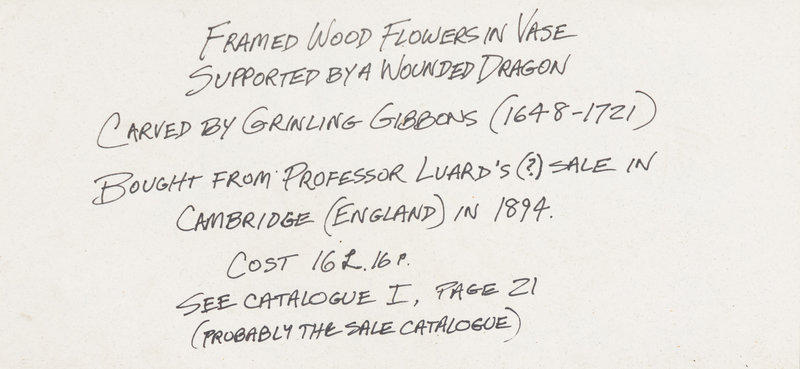 FRAMED WOOD FLOWERS IN VASE
SUPPORTED BY A WOUNDED DRAGON
CARVED BY GRINLING GIBBONS (1648-1721)
BOUGHT FROM PROFESSOR LUARD'S (?) SALE IN
CAMBRIDGE (ENGLAND) IN 1894.
COST 16 L. 16 P.
SEE CATALOGUE I, PAGE 21
(PROBABLY THE SALE CATALOGUE)